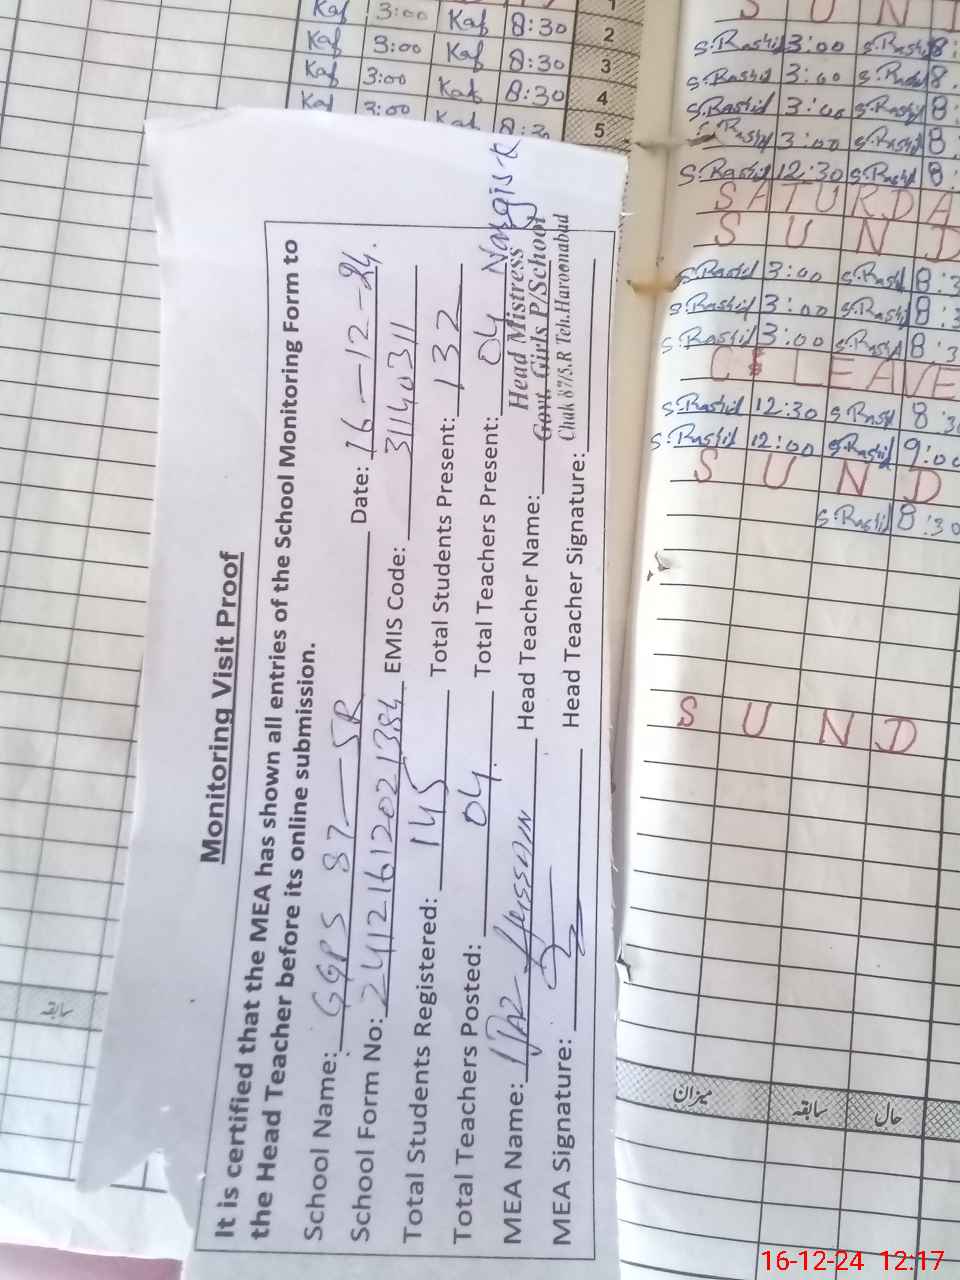 Monitoring Visit Proof
It is certified that the MEA has shown all entries of the School Monitoring Form to
the Head Teacher before its online submission.
School Name: GGPS 87—5R Date: 16—12-24.
School Form No: 24121612021384 EMIS Code: 31140311
Total Students Registered: 145 Total Students Present: 132
Total Teachers Posted: 04 Total Teachers Present: 04
MEA Name: Hussain Head Teacher Name: Nargis
MEA Signature: Head Teacher Signature:
Head Mistress
Govt. Girls P/School
Chak 87/5.R Teh.Haroonabad
Kaf 3:00 Kaf 8:30 2
Kaf 3:00 Kaf 8:30 3
Kaf 3:00 Kaf 8:30 4
Kaf 3:00 Kaf 8:30 5
سابقہ
S U N
S.Rashid 3:00 S.Rashid 8:
S.Rashid 3:00 S.Rashid 8.
S.Rashid 3:00 S.Rashid 8:
S.Rashid 3:00 S.Rashid 8:
S.Rashid 12:30 S.Rashid 8:
S A T U R D A
S U N D
S.Rashid 3:00 S.Rashid 8:3
S.Rashid 3:00 S.Rashid 8:3
S.Rashid 3:00 S.Rashid 8:3
C LEAVE
S.Rashid 12:30 S.Rashid 8:30
S.Rashid 12:00 S.Rashid 9:00
S U N D
S.Rashid 8:30
S U N D
میزان سابقہ حال
16-12-24 12:17